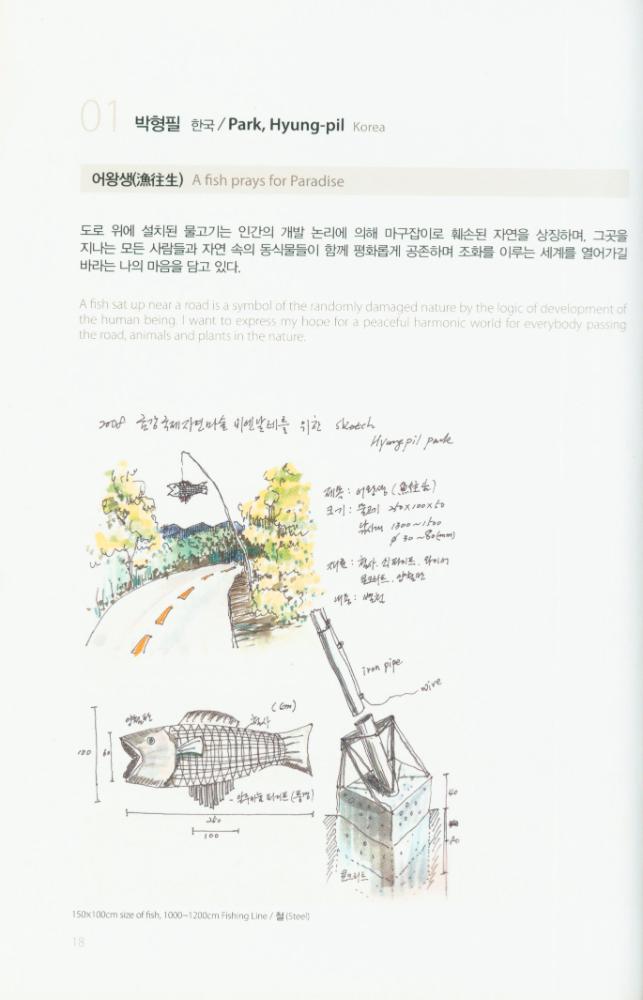 01 박형필 한국 / Park, Hyung-pil Korea
어왕생(漁往生) A fish prays for Paradise
도로 위에 설치된 물고기는 인간의 개발 논리에 의해 마구잡이로 훼손된 자연을 상징하며, 그곳을
지나는 모든 사람들과 자연 속의 동식물들이 함께 평화롭게 공존하며 조화를 이루는 세계를 열어가길
바라는 나의 마음을 담고 있다.
A fish sat up near a road is a symbol of the randomly damaged nature by the logic of development of
the human being. I want to express my hope for a peaceful harmonic world for everybody passing
the road, animals and plants in the nature.
2008 금강국제자연미술 비엔날레를 위한 sketch
Hyungpil park
제목: 어왕생
크기: 물고기 250x100x50
낚시대 1300~1500
ø 30~80(mm)
재료: 철사. 와이어
콘크리트. 양철판
iron pipe
wire
양철판
철사
(cm)
120
60
250
100
40
콘크리트
150x100cm size of fish, 1000~1200cm Fishing Line / 철 (Steel)
18